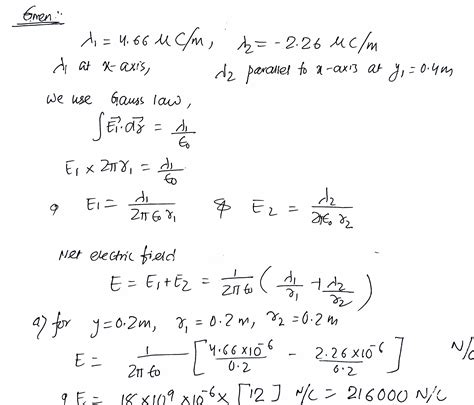 Given:-
λ₁ = 4.66 μC/m, λ₂ = -2.26 μC/m
λ₁ at x-axis, λ₂ parallel to x-axis at y₁ = 0.4m
We use Gauss law,
∫E₁⃗.ds⃗ = λ₁/ε₀
E₁ × 2πr₁ = λ₁/ε₀
E₁ = λ₁/2πε₀r₁ & E₂ = λ₂/2πε₀r₂
Net electric field
E = E₁+E₂ = 1/2πε₀ (λ₁/r₁ + λ₂/r₂)
a) for y=0.2m, r₁=0.2m, r₂=0.2m
E = 1/2πε₀ [4.66×10⁻⁶/0.2 - 2.26×10⁻⁶/0.2] N/C
E = 18×10⁹×10⁻⁶×[12] N/C = 216000 N/C